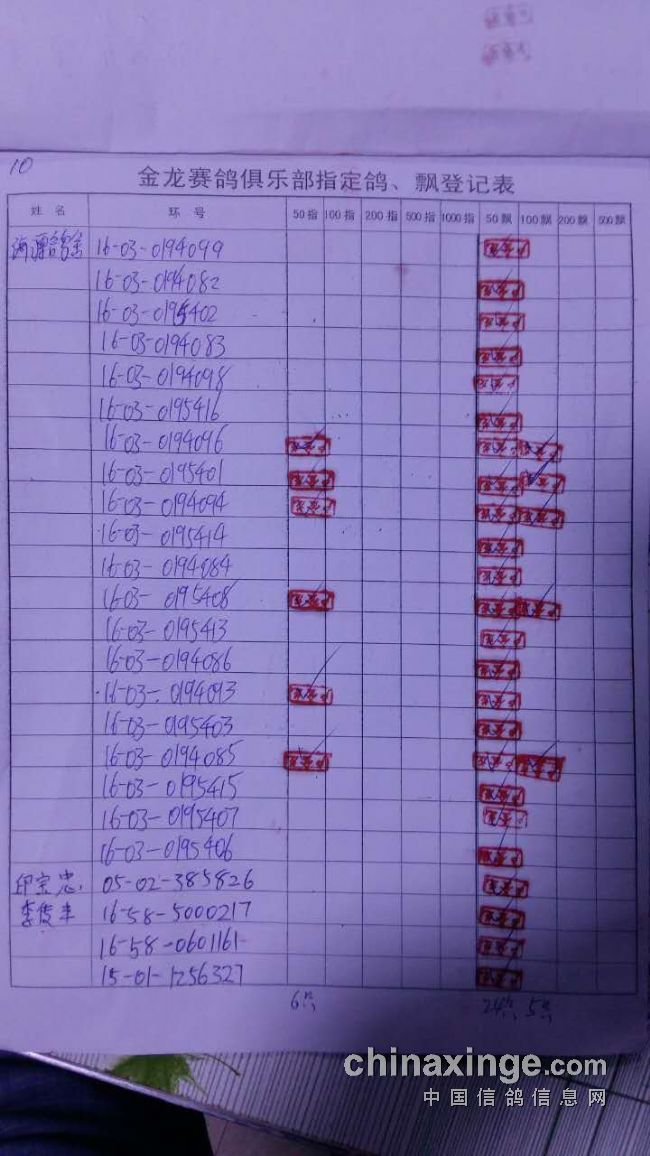 10
金龙赛鸽俱乐部指定鸽、飘登记表
姓名 环号 50指 100指 200指 500指 1000指 50飘 100飘 200飘 500飘
16-03-0194099
16-03-0194082
16-03-0195402
16-03-0194083
16-03-0194098
16-03-0195416
16-03-0194096
16-03-0195401
16-03-0194094
16-03-0195414
16-03-0194084
16-03-0195408
16-03-0195413
16-03-0194086
16-03-0194093
16-03-0195403
16-03-0194085
16-03-0195415
16-03-0195407
16-03-0195406
印宝忠 05-02-385826
李俊丰 16-58-5000217
16-58-0601161
15-01-1256327
6只 24只 5只
chinaxinge.com
中国信鸽信息网